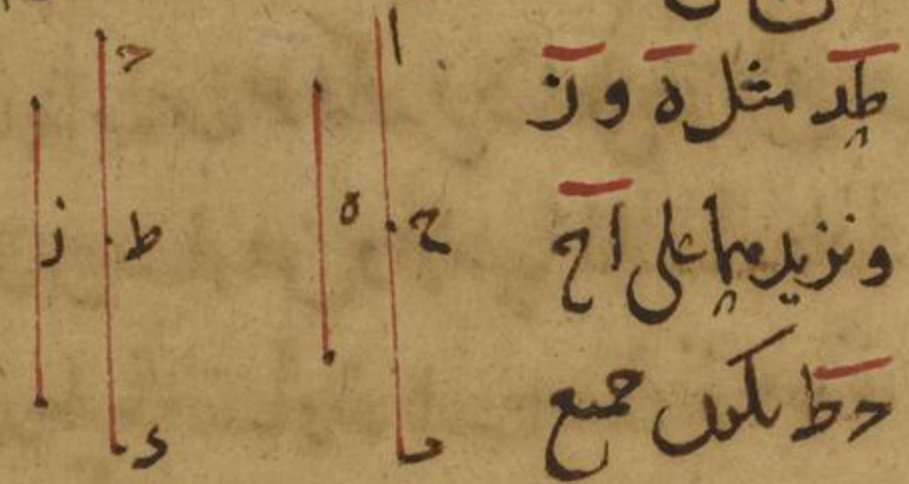 طد مثل ه و ز
ونزيدهما على اح
جط يكون جميع
ا
ح
ب
ه
ج
ط
د
ز